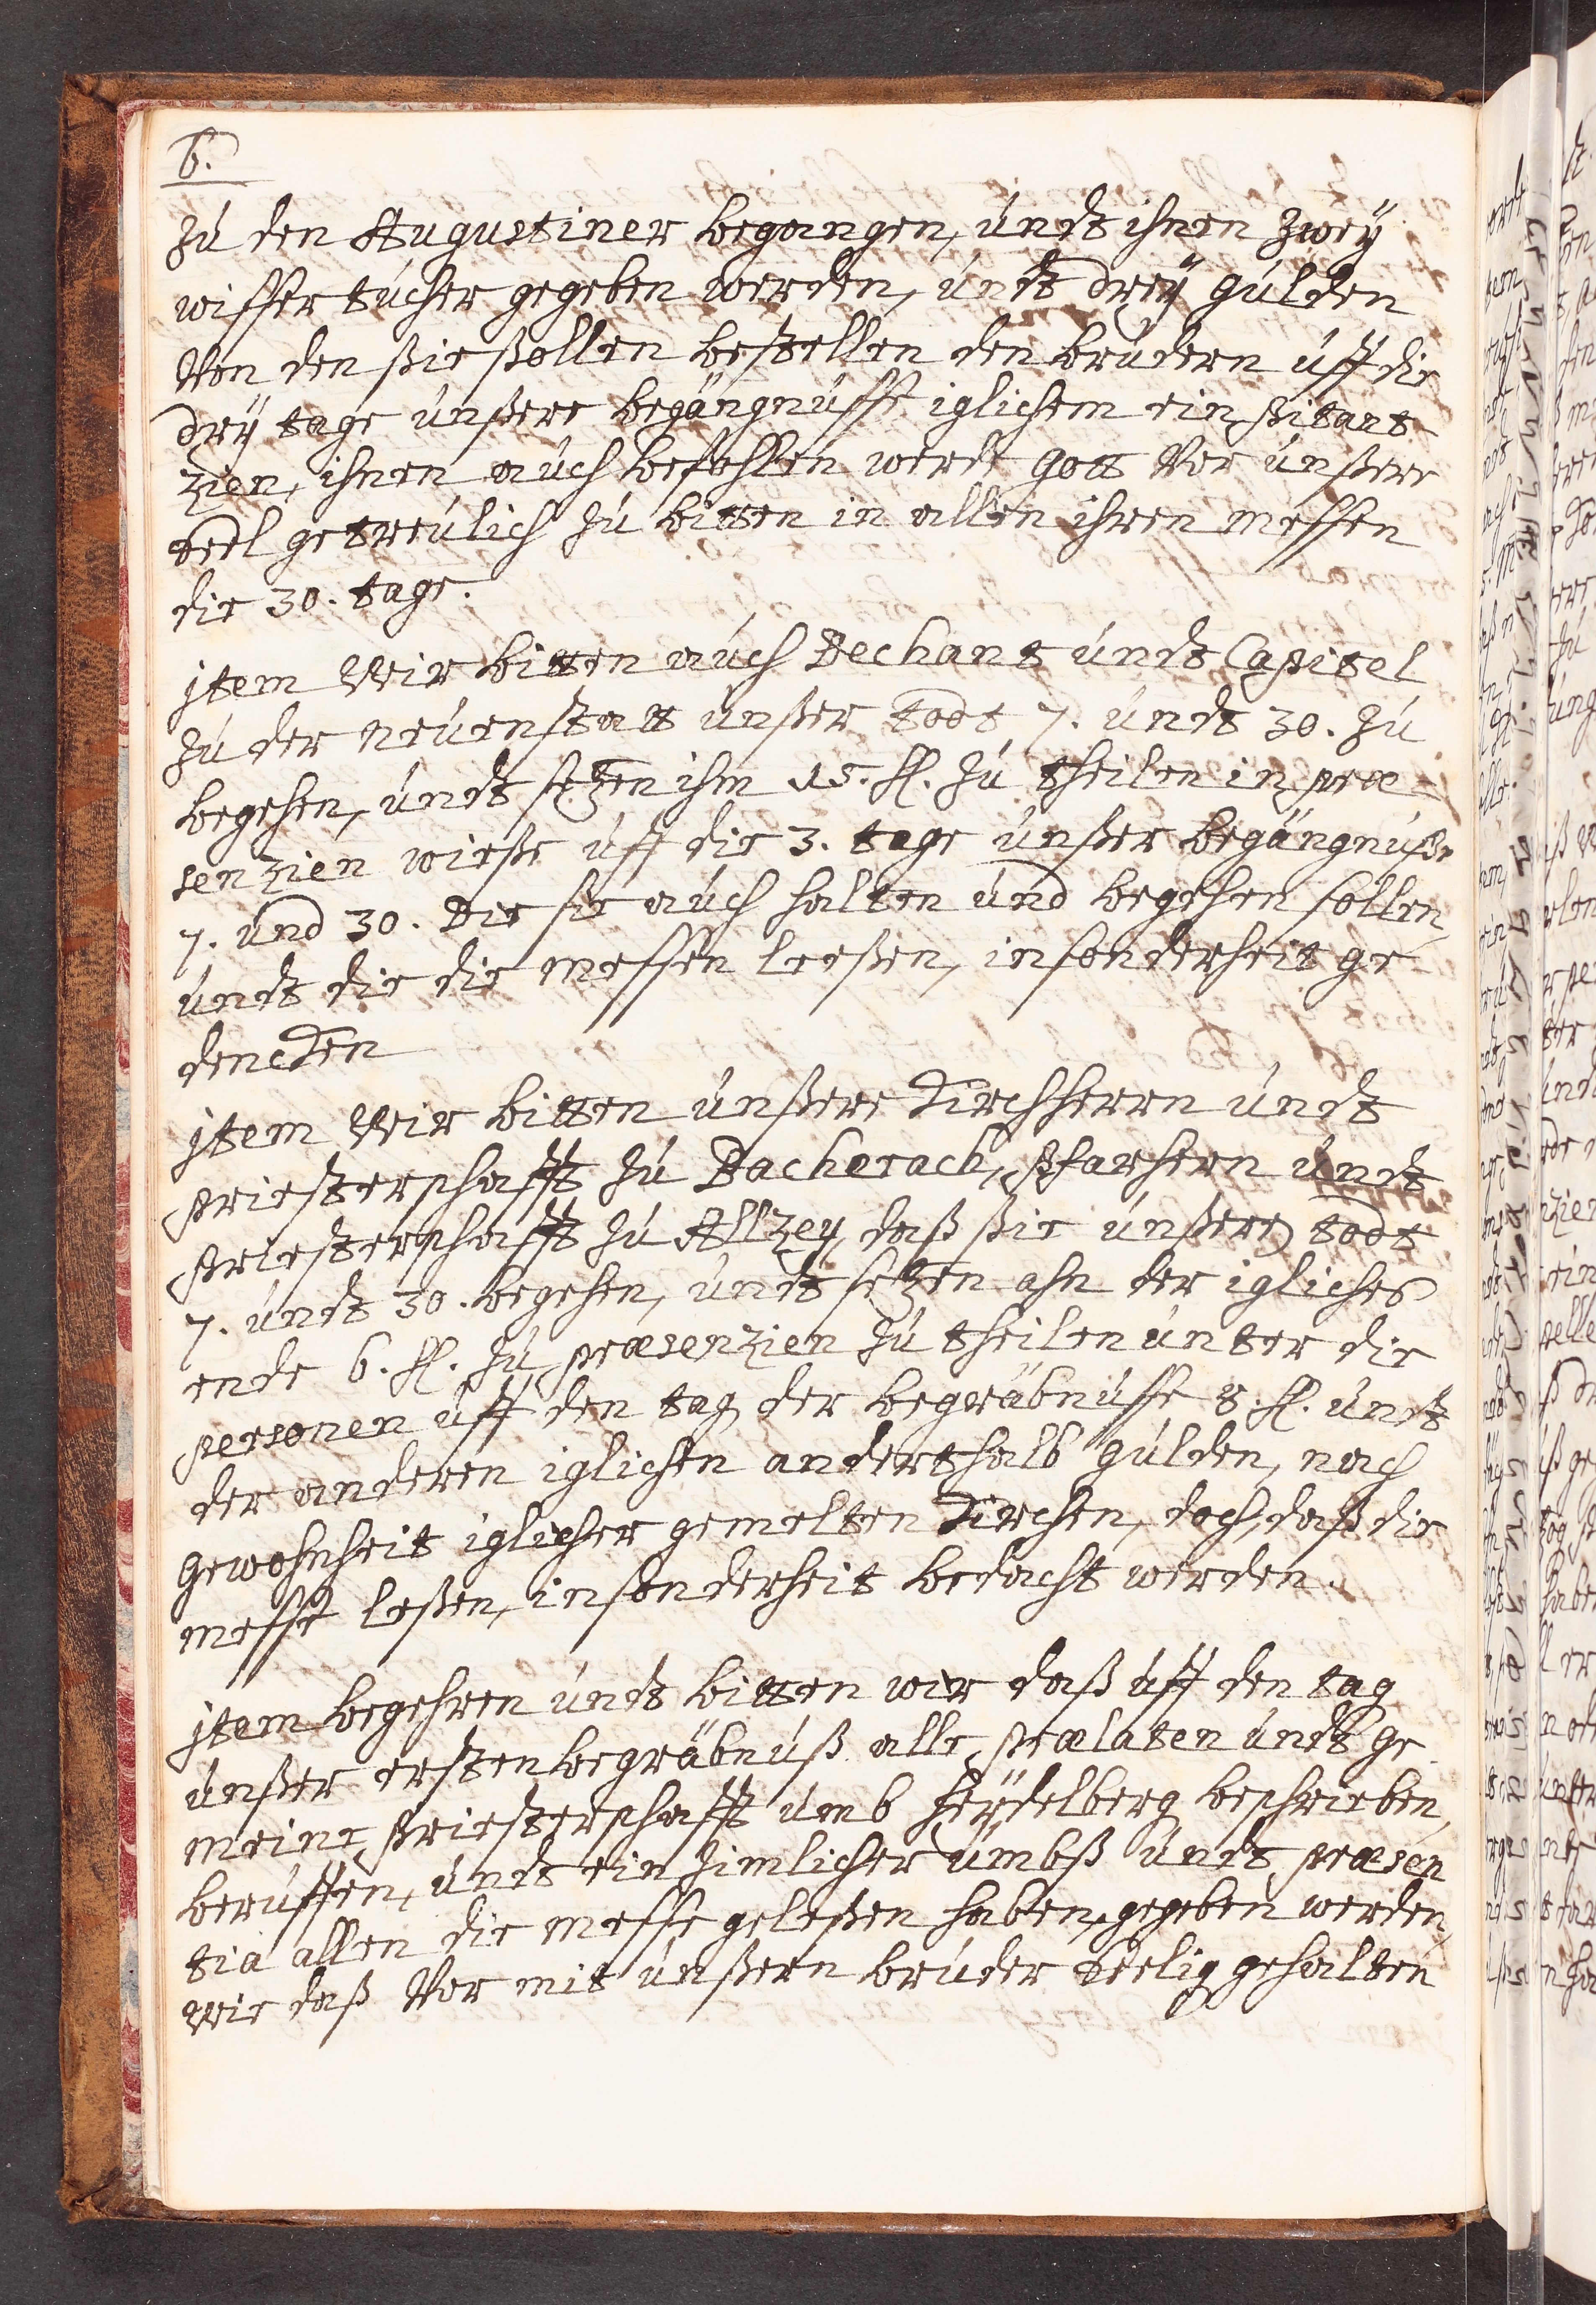 6.
zu den Augustiner begangen, undt ihnen zweÿ
wisser tücher gegeben werden, undt dreÿ gulden
Von den ßie ßollen bestellen den brüdern uff die
dreÿ tage unßere begängnüsse iglichem ein pitant-
zien, ihnen auch befohllen werde gott Vor unßere
Seel getreülich zu bitten in allen ihren messen
die 30. tage.
jtem Wir bitten auch Dechant undt Capitel
zu der neuenstatt unßer todt 7. undt 30. zu
begehen, undt setzen ihm 15. fl. zu theilen in præ-
senzien wieße uff die 3. tage unßer begängnuße
7. und 30. Die sie auch halten und begehen sollen,
undt die die messen leeßen, insonderheit ge-
dencken
jtem Wir bitten unßere Kirchherrn undt
priesterschafft zu Bacherach, Pfarhern undt
Priesterschafft zu Altzey, daß ßie unßere todt
7. undt 30. begehen, undt setzen ahn der igliches
ende 6. fl. zu præsenzien zu theilen unter die
personen uff den tag der begräbnüsse 3. fl. undt
der anderen iglichen anderthalb gulden, nach
gewohnheit iglicher gemelten Kirchen, doch, daß die
messe leßen, insonderheit bedacht werden.
jtem begehren undt bitten wir daß uff den tag
unßer ersten begräbnüß alle prælaten undt ge
meine Priesterschafft umb Heÿdelberg beschrieben,
beruffen, undt ein zimlicher ümbß undt præsen
tia allen die messe geleßen haben, gegeben werden,
Wie daß Vor mit unßern bruder Seelig gehalten